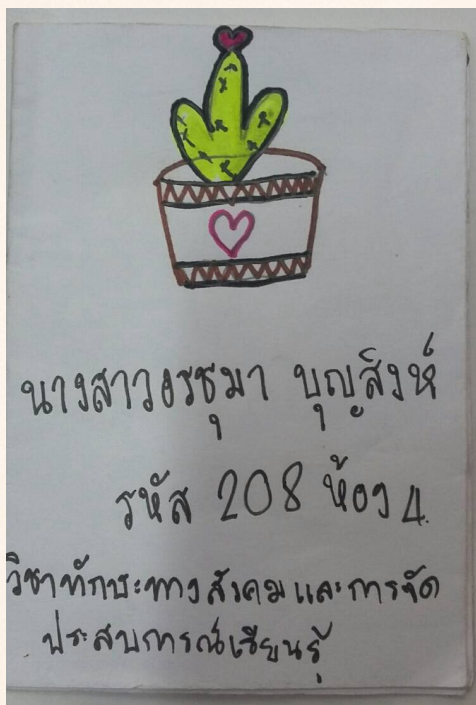 นางสาวอรชุมา บุญสิงห์
รหัส 208 ห้อง 4
วิชาทักษะทางสังคมและการจัด
ประสบการณ์เรียนรู้